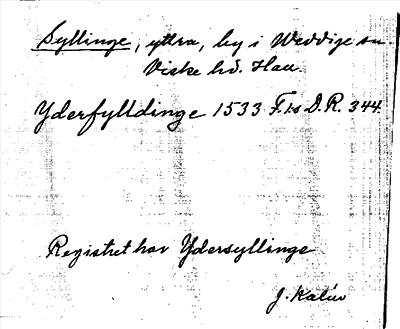 Syllinge, yttra, by i Weddige sn.
Viske hd. Hall.
Yderfylldinge 1533 F. 1s D.R. 344
Registret har Ydersyllinge
J. Kalén